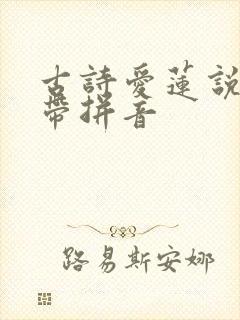 古詩愛蓮說
帶拼音
路易斯安娜